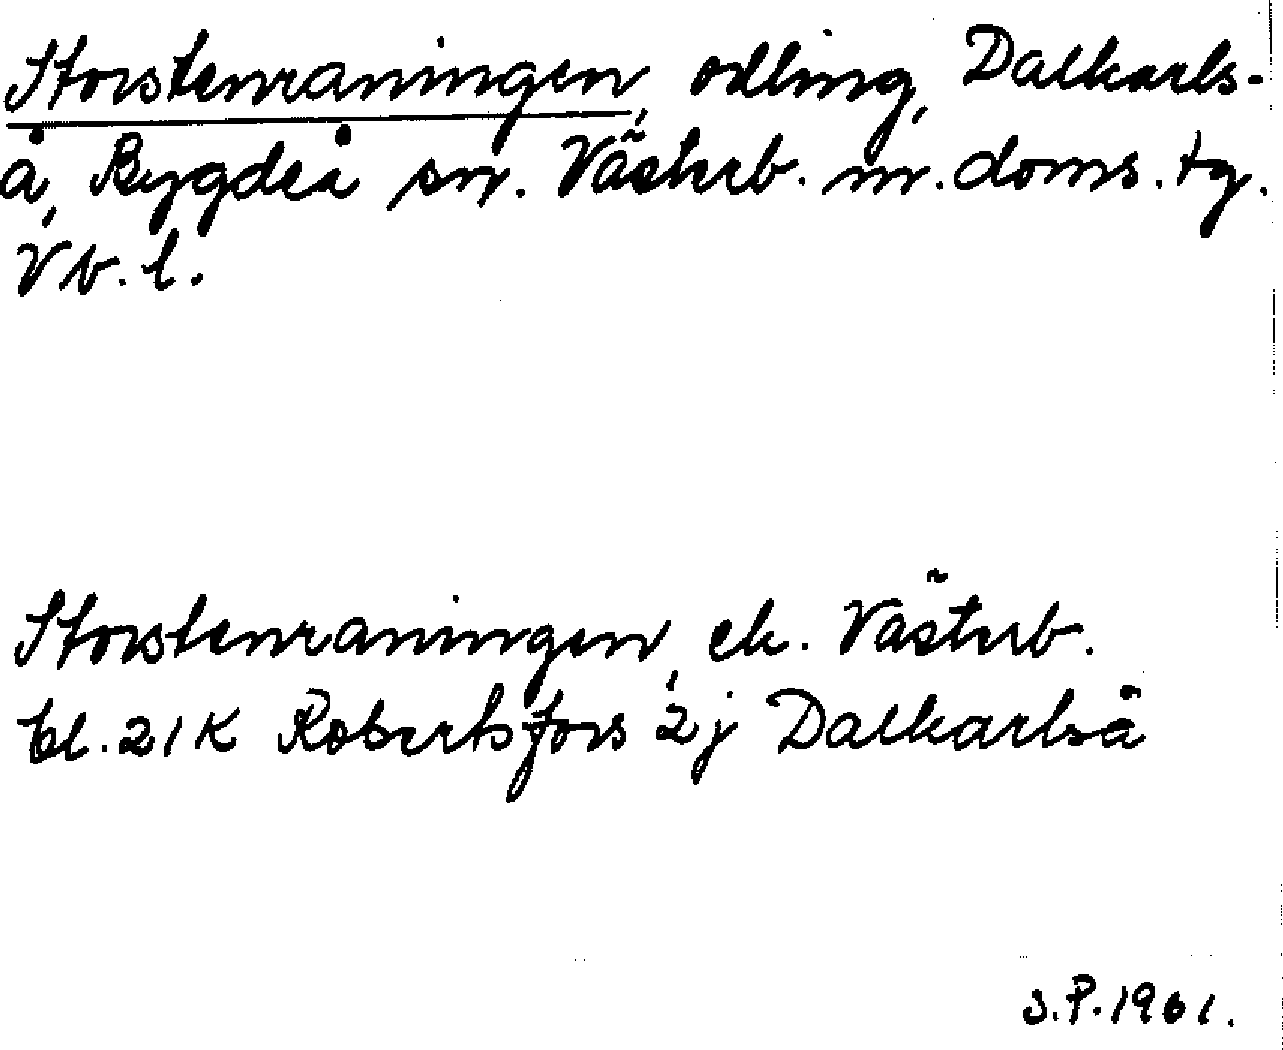 Storstenraningen, odling, Dalkarls-
å, Bygdeå sn. Västerb. m. doms. tg.
Vb. l.
Storstenraningen, ek. Västerb.
bl. 21K Robertsfors 2j Dalkarlså
S.P. 1961.